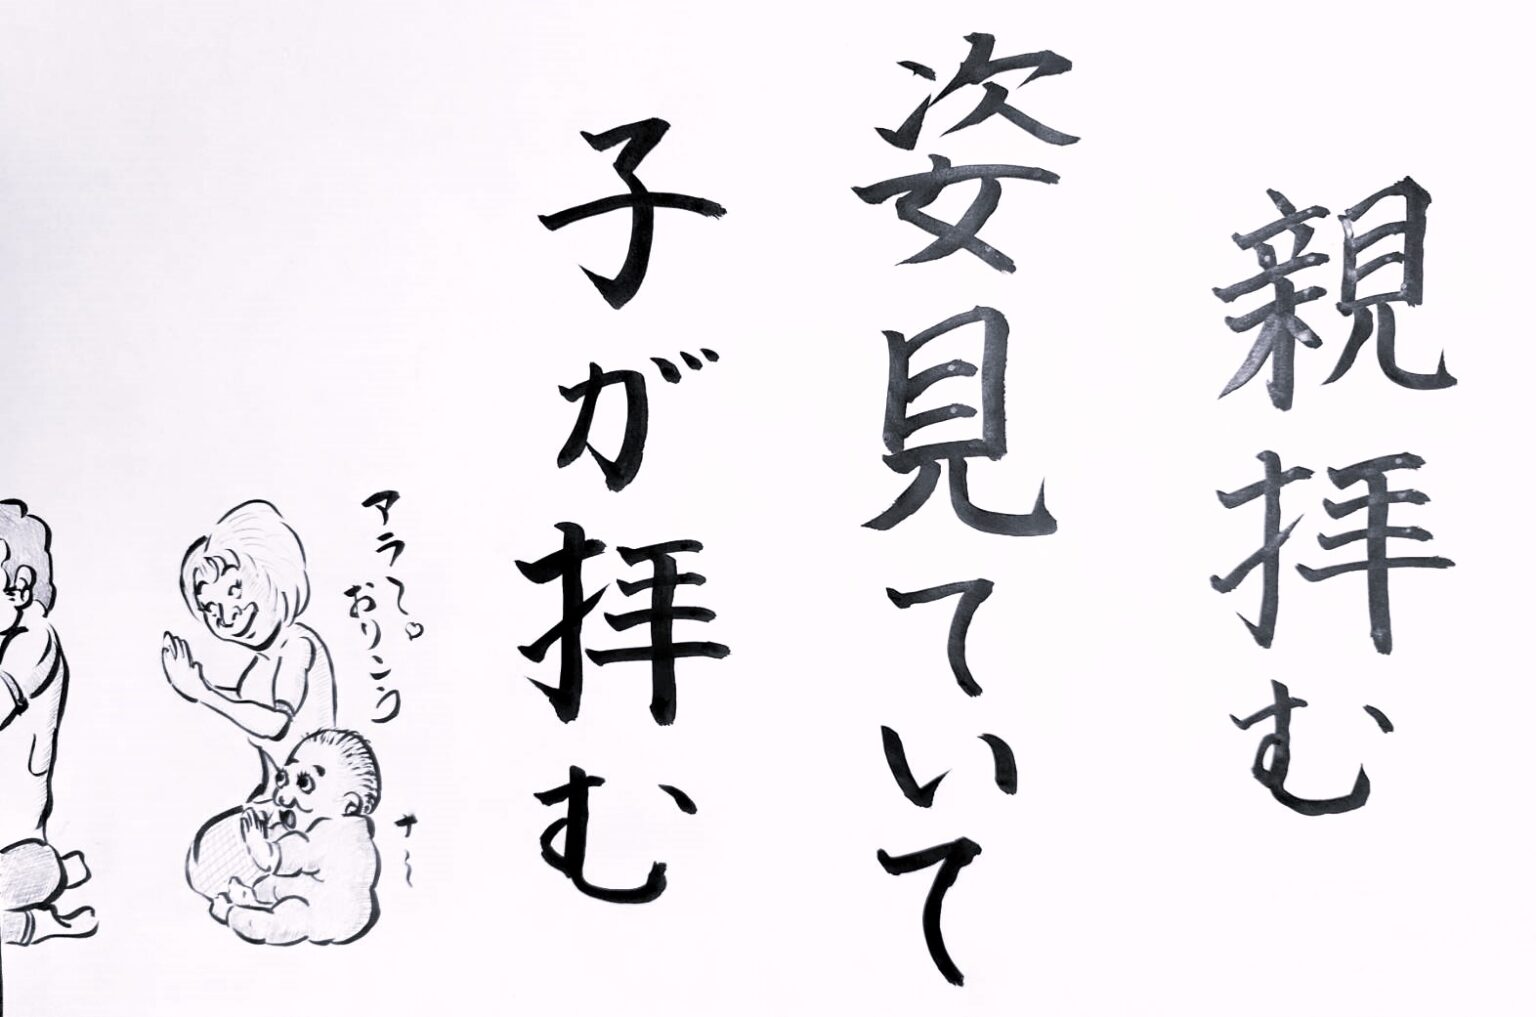 親拝む
姿見ていて
子が拝む
アラ〜♡
おリンう
ナ〜